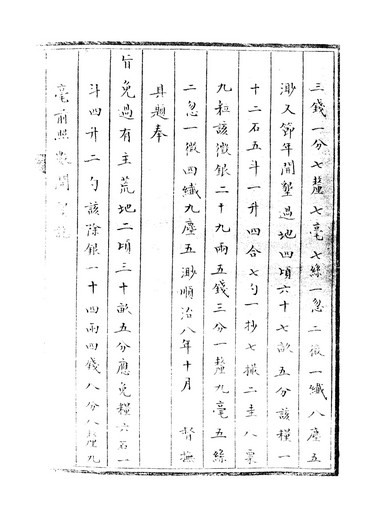 三錢一分七釐七毫七絲一忽二微一纖八塵五
渺又節年開墾過地四頃六十七畝五分該糧一
十二石五斗一升四合七勺一抄七撮二圭八粟
九粒該徵銀二十九兩五錢三分一釐九毫五絲
二忽一微四纖九塵五渺順治八年十月 督撫
具題奉
旨免過有主荒地二頃三十畝五分應免糧六石一
斗四升二勺該除銀一十四兩四錢八分八釐九
毫前照數開